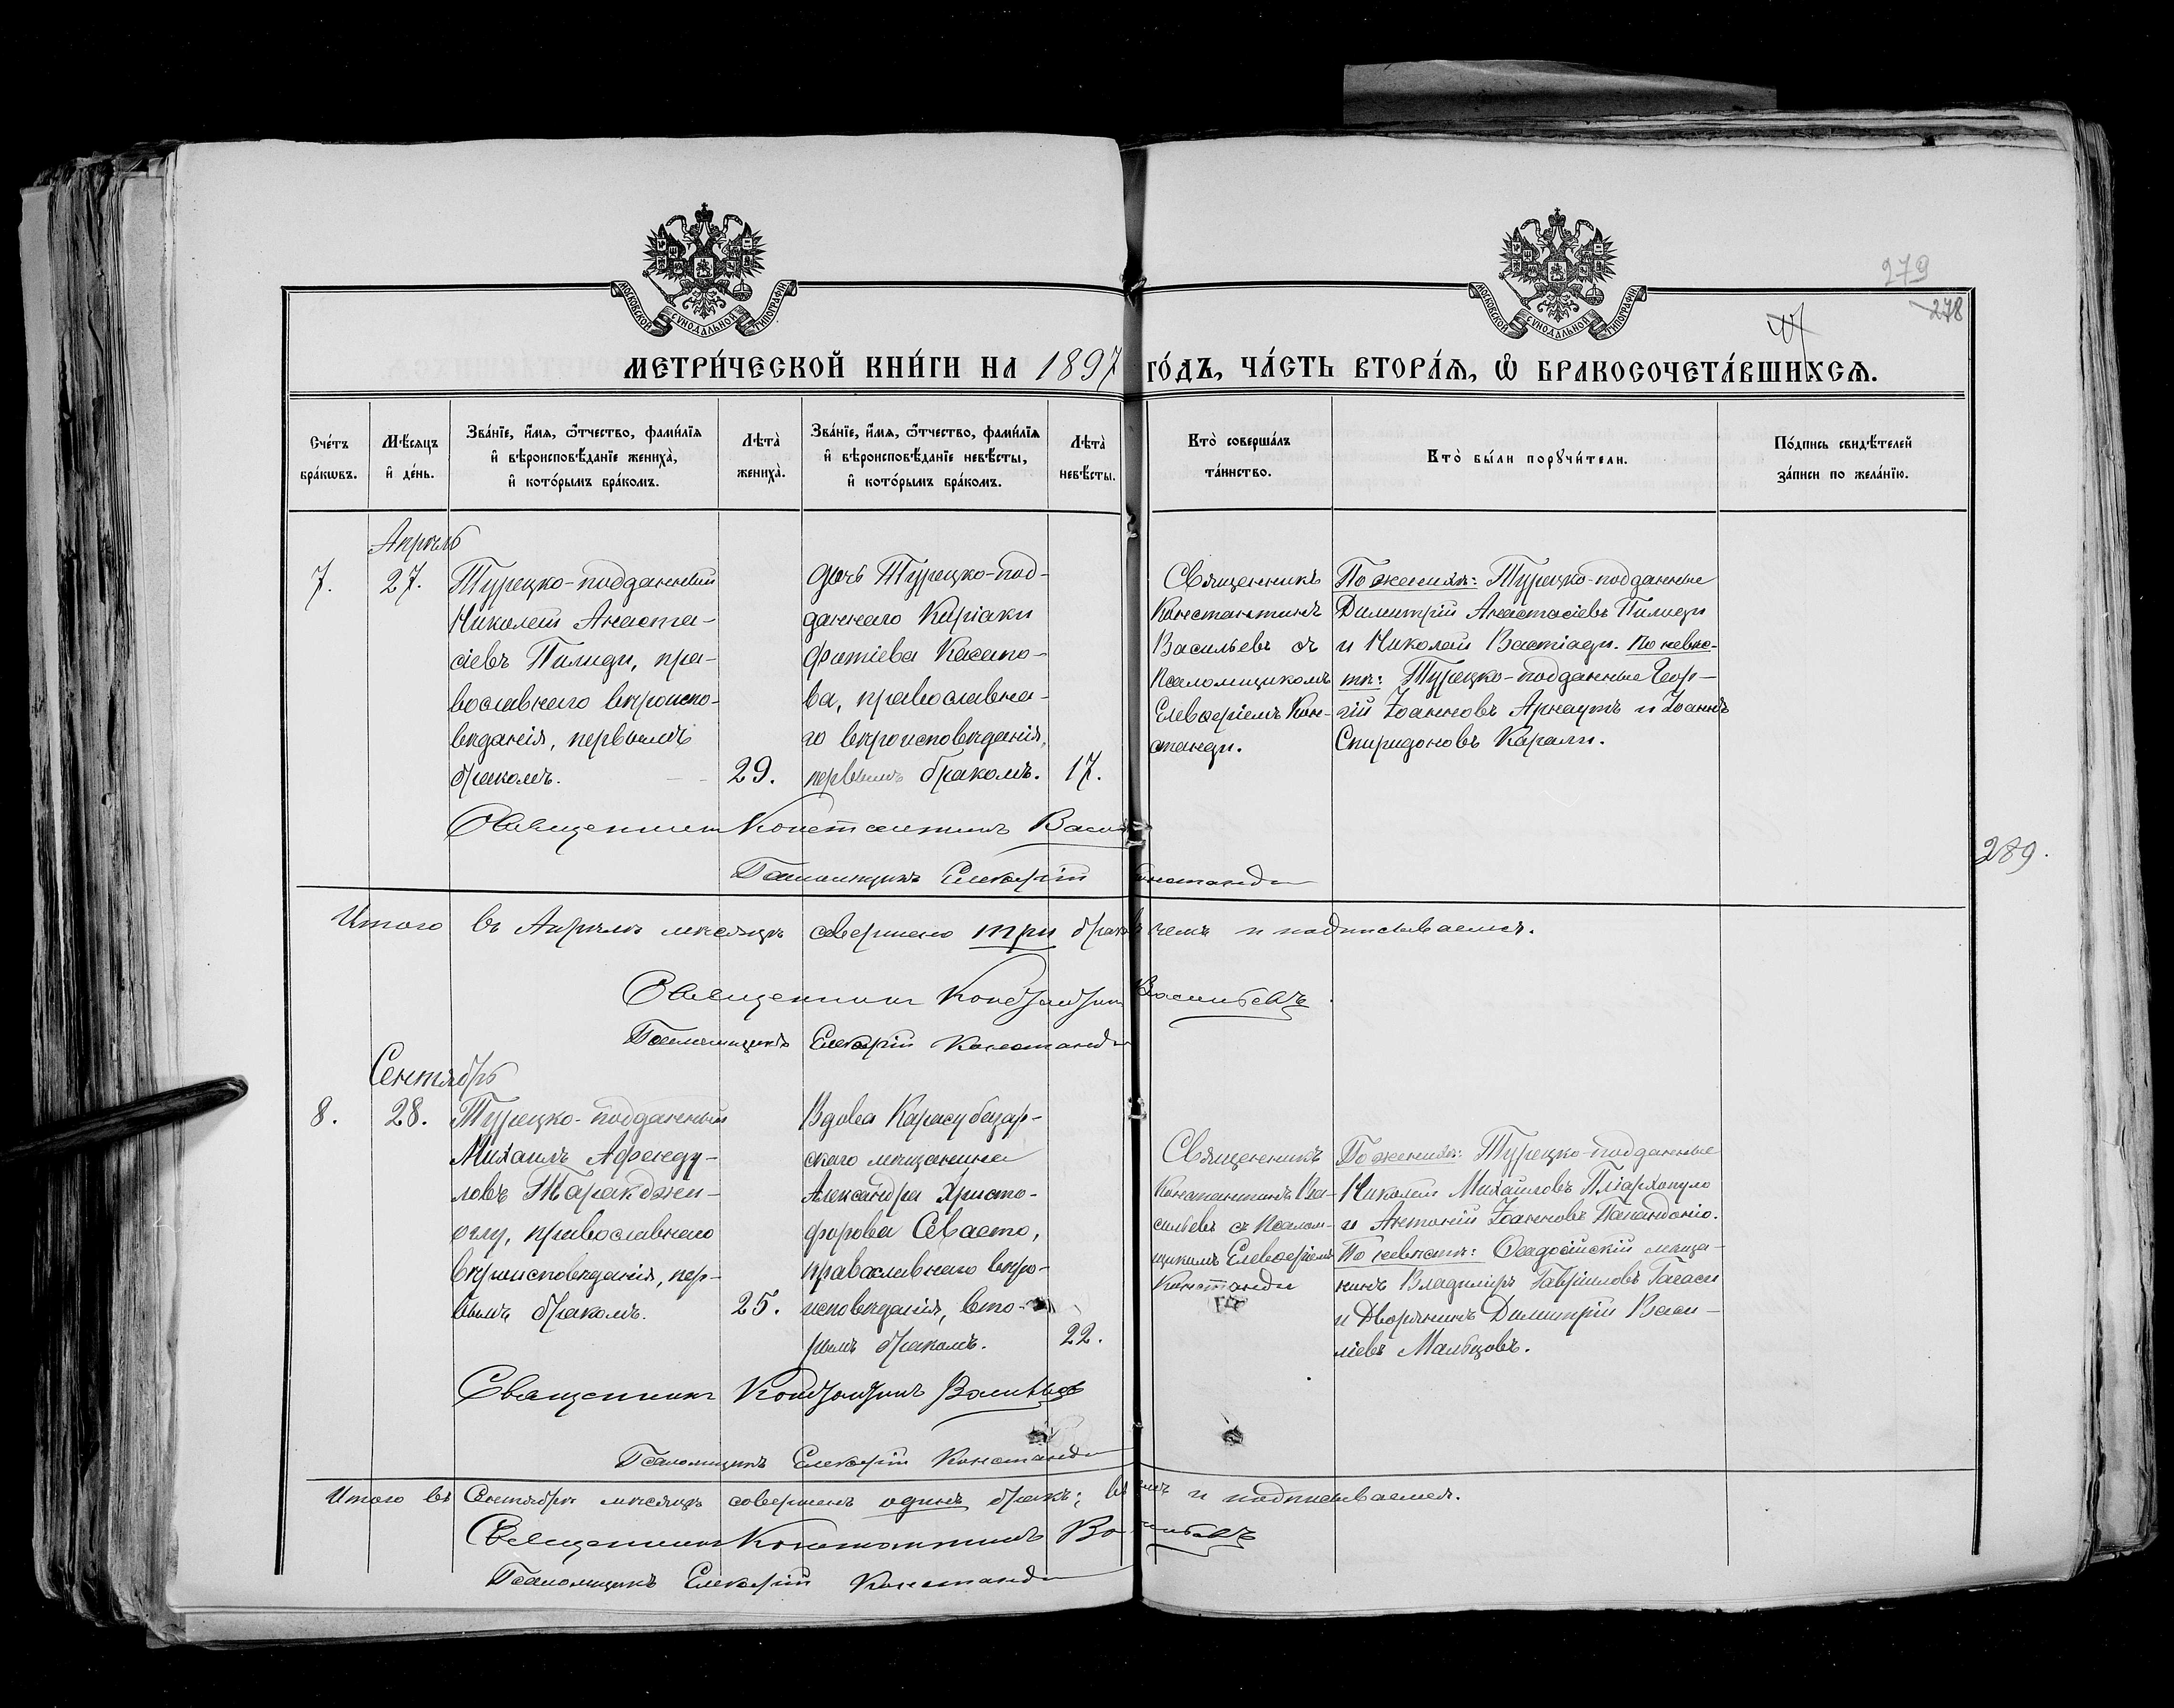 279
278
МОСКОВСКОЙ СѴНОДАЛЬНОЙ ТИПОГРАФІИ
МОСКОВСКОЙ СѴНОДАЛЬНОЙ ТИПОГРАФІИ
МЕТРИ́ЧЕСКОЙ КНИ́ГИ НА 1897 ГО́ДЪ, ЧА́СТЬ ВТОРА́Я, Ѡ҆ БРАКОСОЧЕТА́ВШИХСЯ.
Сче́тъ
бра́кѡвъ.
Мѣ́сяцъ
и҆ де́нь.
Зва́нїе, и҆́мя, ѻ҆́тчество, фами́лїя
и҆ вѣроисповѣ́данїе жениха̀,
и҆ кото́рымъ бра́комъ.
Лѣта̀
жениха̀.
Зва́нїе, и҆́мя, ѻ҆́тчество, фами́лїя
и҆ вѣроисповѣ́данїе невѣ́сты,
и҆ кото́рымъ бра́комъ.
Лѣта̀
невѣ́сты.
Кто̀ соверша́лъ
та́инство.
Кто̀ бы́ли порꙋчи́тели.
По́дпись свидѣ́телей
за́писи по жела́нїю.
Апрѣль
7.
27.
Турецко-подданный
Николай Анаста-
сіевъ Пилиди, пра-
вославнаго вѣроиспо-
вѣданія, первымъ
бракомъ.
29.
Дочь Турецко-под-
даннаго Киріаки
Фотіева Касапо-
ва, православна-
го вѣроисповѣданія,
первымъ бракомъ.
17.
Священникъ
Константинъ
Васильевъ съ
Псаломщикомъ
Елевѳеріемъ Кон-
станди.
По женихѣ: Турецко-подданные
Димитрій Анастасіевъ Пилиди
и Николай Вастіади. По невѣс-
тѣ: Турецко-подданные Геор-
гій Іоанновъ Арнаутъ и Іоаннъ
Спиридоновъ Карали.
Священникъ Константинъ Васильевъ
Псаломщикъ Елевѳерій Констанди
289.
Итого въ Апрѣлѣ мѣсяцѣ совершено три брака чемъ и подписываемся.
Священникъ Константинъ Васильевъ
Псаломщикъ Елевѳерій Констанди
Сентябрь
8.
28.
Турецко-подданный
Михаилъ Афенду-
ловъ Таракджи-
оглу, православнаго
вѣроисповѣданія, пер-
вымъ бракомъ.
25.
Вдова Карасубазар-
скаго мѣщанина
Александра Христо-
форова Севасто,
православнаго вѣро-
исповѣданія, вто-
рымъ бракомъ.
22.
Священникъ
Константинъ Ва-
сильевъ съ Псалом-
щикомъ Елевѳеріемъ
Констанди
По женихѣ: Турецко-подданные
Николай Михайловъ
и Антоній Іоанновъ
По невѣстѣ: Ѳеодосійскій мѣща-
нинъ Владиміръ Гавріиловъ
и Дворянинъ Димитрій Васи-
ліевъ Мальцовъ.
Священникъ Константинъ Васильевъ
Псаломщикъ Елевѳерій Констанди
Итого въ Сентябрѣ мѣсяцѣ совершенъ одинъ бракъ; въ чемъ и подписываемся.
Священникъ Константинъ Васильевъ
Псаломщикъ Елевѳерій Констанди